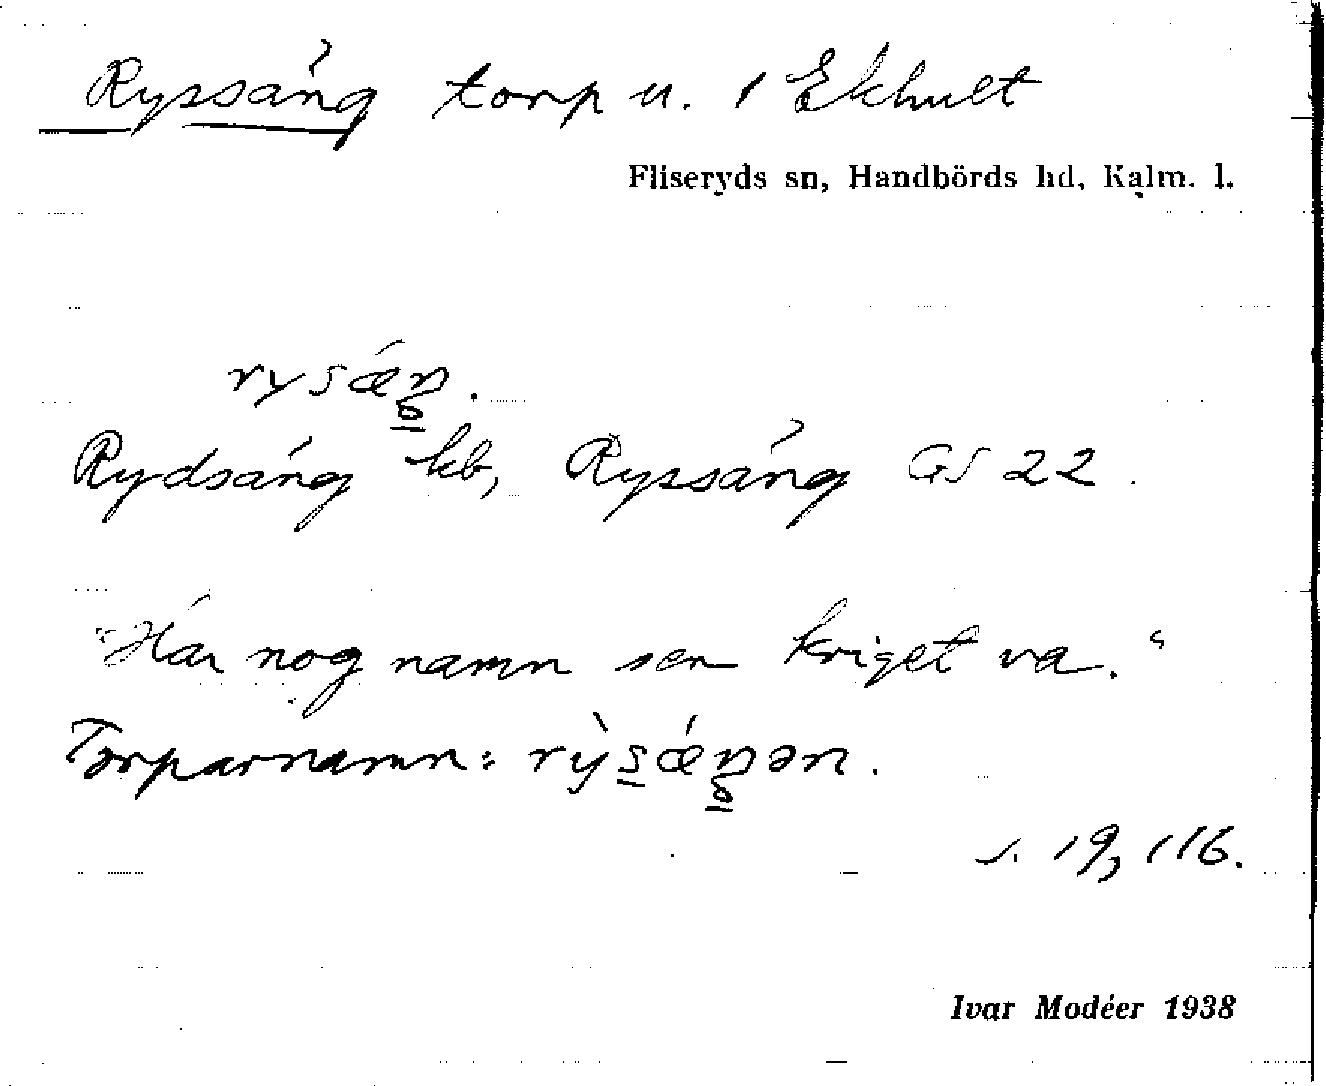 Ryssäng torp u. 1 Ekhult
Fliseryds sn, Handbörds hd, Kalm. l.
rysǽŋ.
Rydsäng kb, Ryssäng GS 22.
"Har nog namn sen kriget va."
Torparnamn: rỳsǽŋən.
s. 19, 116.
Ivar Modéer 1938